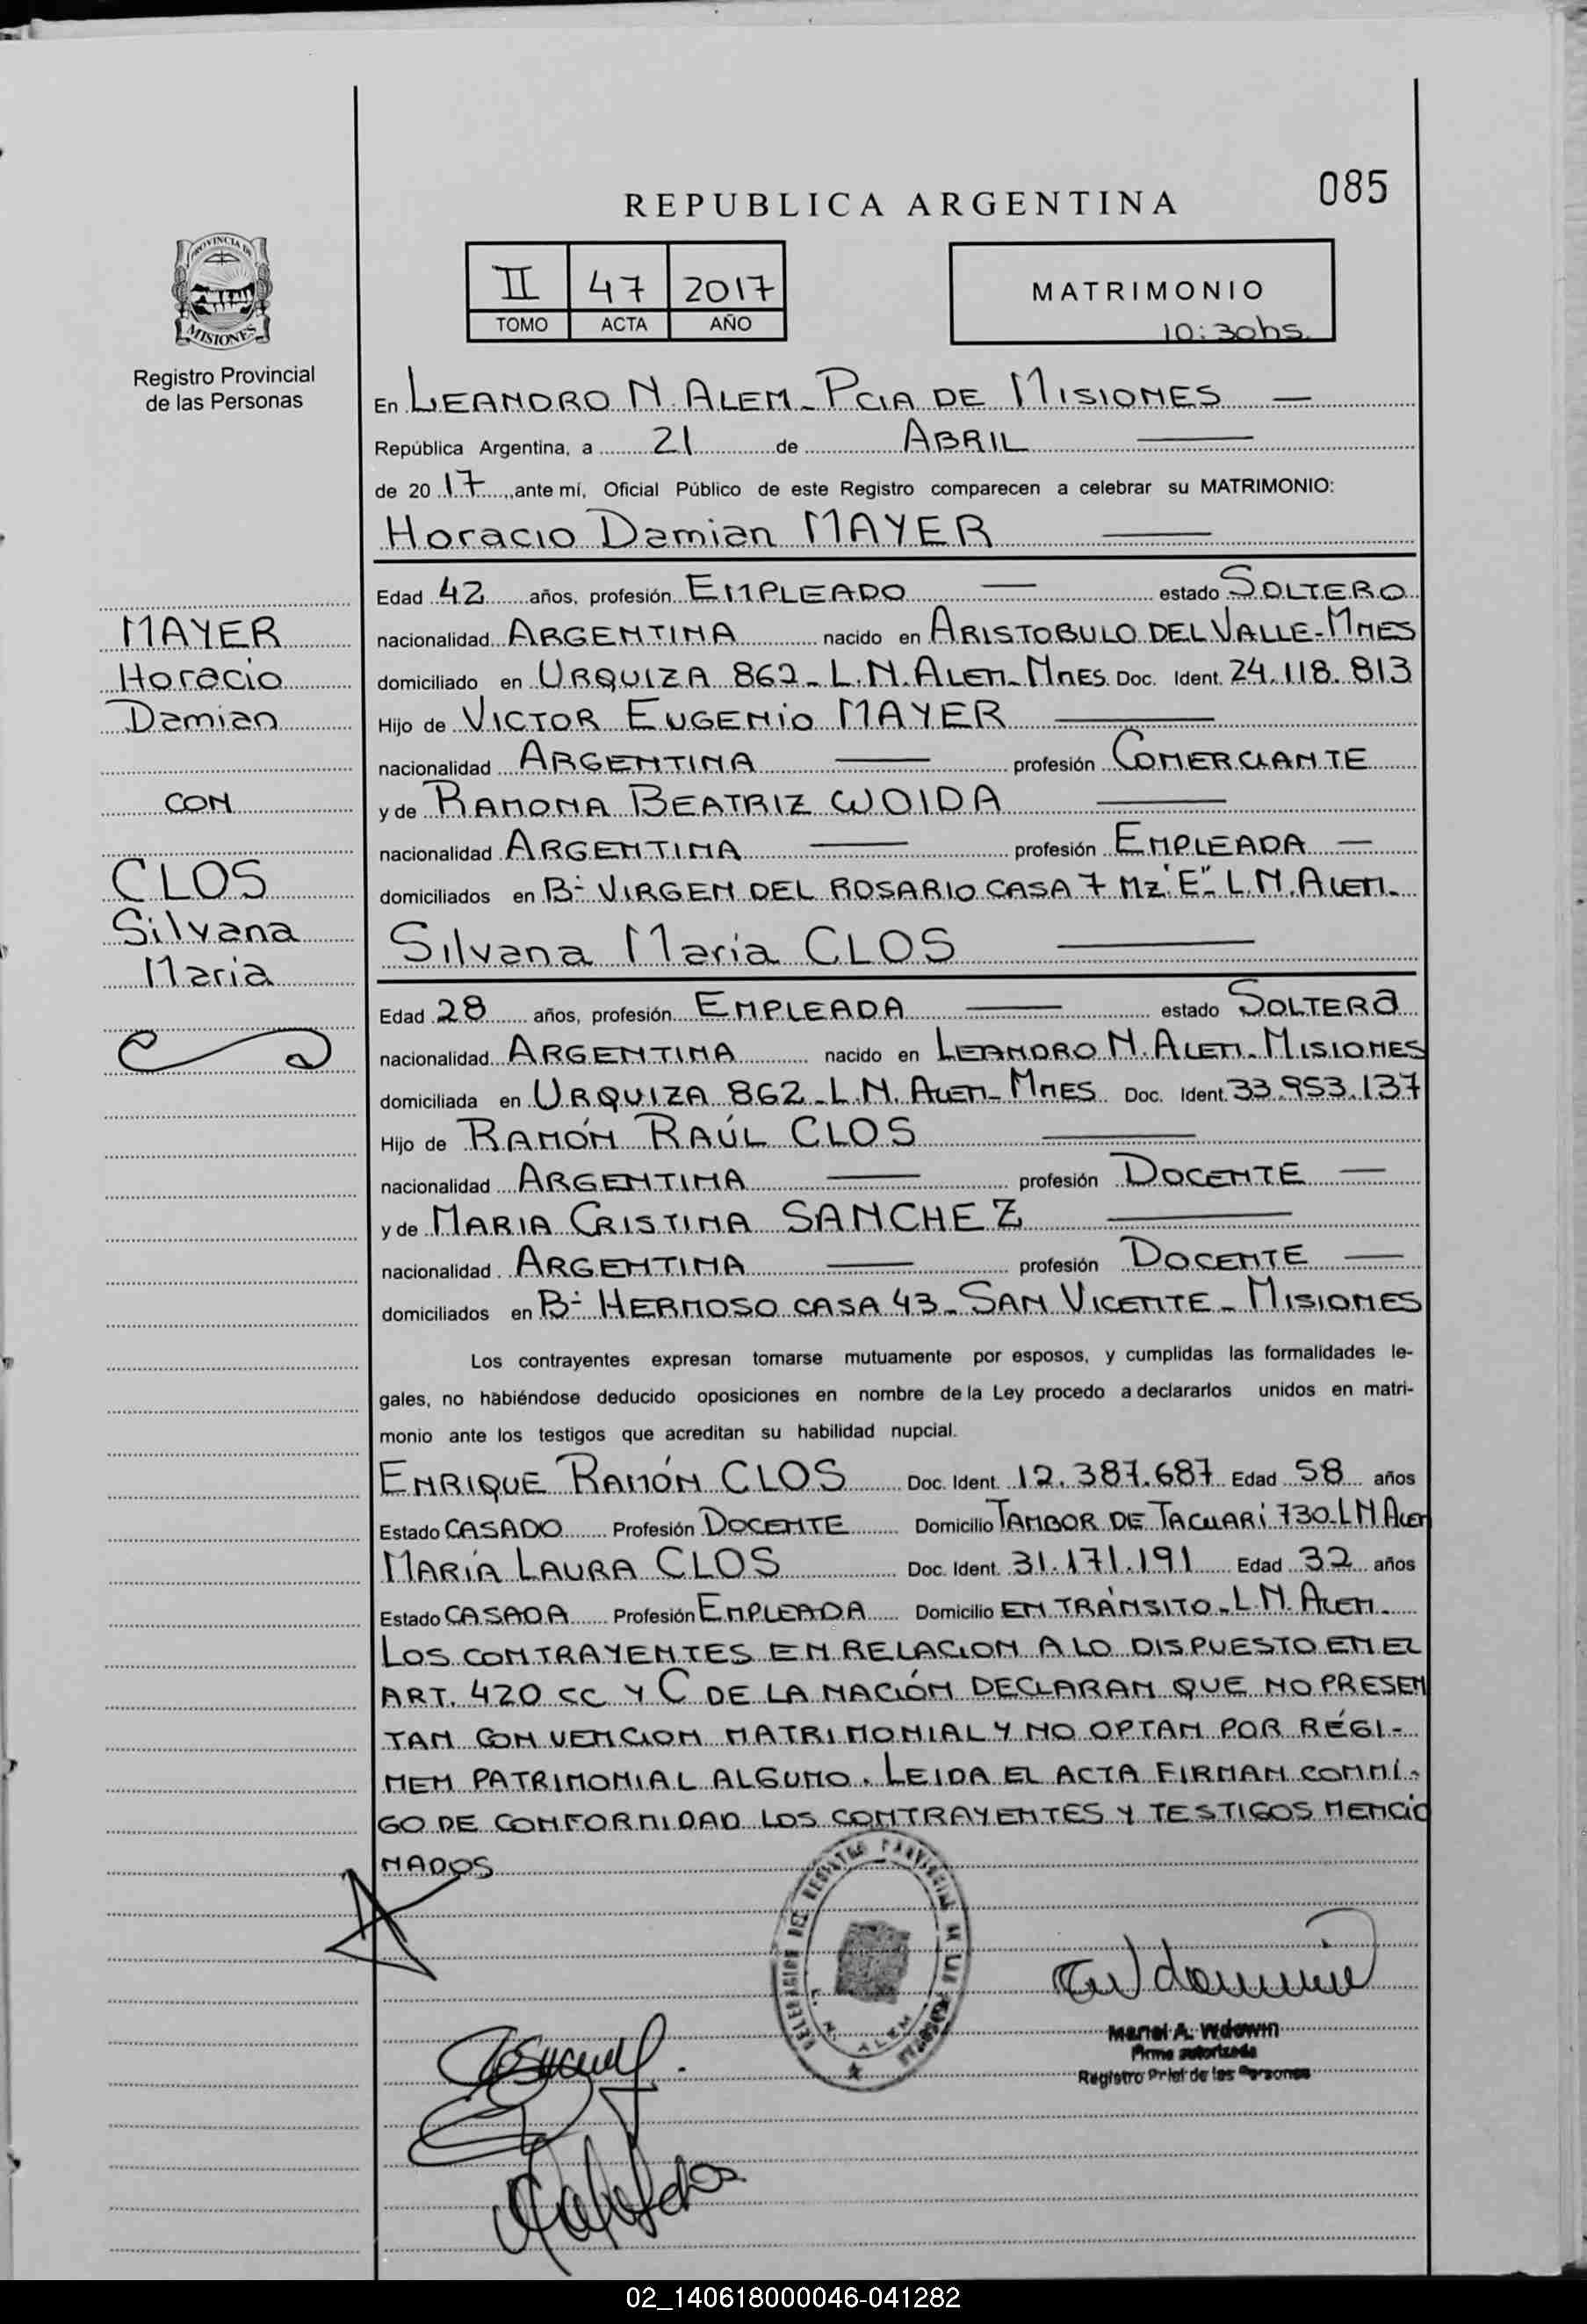 085
REPUBLICA ARGENTINA
PROVINCIA DE
MISIONES
Registro Provincial
de las Personas
II 47 2017
TOMO ACTA AÑO
MATRIMONIO
10:30hs.
En LEANDRO N. ALEM - PCIA DE MISIONES —
República Argentina, a 21 de ABRIL —
de 2017, ante mí, Oficial Público de este Registro comparecen a celebrar su MATRIMONIO:
Horacio Damian MAYER —
Edad 42 años, profesión EMPLEADO — estado SOLTERO
nacionalidad ARGENTINA nacido en ARISTOBULO DEL VALLE - MNES
domiciliado en URQUIZA 862 - L.N. ALEM - MNES. Doc. Ident. 24.118.813
Hijo de VICTOR EUGENIO MAYER —
nacionalidad ARGENTINA — profesión COMERCIANTE
y de RAMONA BEATRIZ WOIDA —
nacionalidad ARGENTINA — profesión EMPLEADA —
domiciliados en Bº VIRGEN DEL ROSARIO CASA 7 MZ "E" L.N. ALEM.
Silvana Maria CLOS —
Edad 28 años, profesión EMPLEADA — estado SOLTERA
nacionalidad ARGENTINA nacido en LEANDRO N. ALEM - MISIONES
domiciliada en URQUIZA 862 - L.N. ALEM - MNES Doc. Ident. 33.953.137
Hijo de RAMÓN RAÚL CLOS —
nacionalidad ARGENTINA — profesión DOCENTE —
y de MARIA CRISTINA SANCHEZ —
nacionalidad ARGENTINA — profesión DOCENTE —
domiciliados en Bº HERMOSO CASA 43 - SAN VICENTE - MISIONES
Los contrayentes expresan tomarse mutuamente por esposos, y cumplidas las formalidades le-
gales, no habiéndose deducido oposiciones en nombre de la Ley procedo a declararlos unidos en matri-
monio ante los testigos que acreditan su habilidad nupcial.
ENRIQUE RAMÓN CLOS Doc. Ident. 12.387.687 Edad 58 años
Estado CASADO Profesión DOCENTE Domicilio TAMBOR DE TACUARÍ 730 - LN ALEM
MARÍA LAURA CLOS Doc. Ident. 31.171.191 Edad 32 años
Estado CASADA Profesión EMPLEADA Domicilio EN TRÁNSITO - L.N. ALEM.
LOS CONTRAYENTES EN RELACION A LO DISPUESTO EN EL
ART. 420 CC Y C DE LA NACIÓN DECLARAN QUE NO PRESEN
TAN CONVENCION MATRIMONIAL Y NO OPTAN POR RÉGI-
MEN PATRIMONIAL ALGUNO. LEIDA EL ACTA FIRMAN CONMÍ-
GO DE CONFORMIDAD LOS CONTRAYENTES Y TESTIGOS MENCIO
NADOS
MAYER
Horacio
Damian
CON
CLOS
Silvana
Maria
DELEGACION DEL REGISTRO PROVINCIAL DE LAS PERSONAS
L. N. ALEM
Mariel A. Wdowin
Firma autorizada
Registro Prial de las Personas
02_140618000046-041282